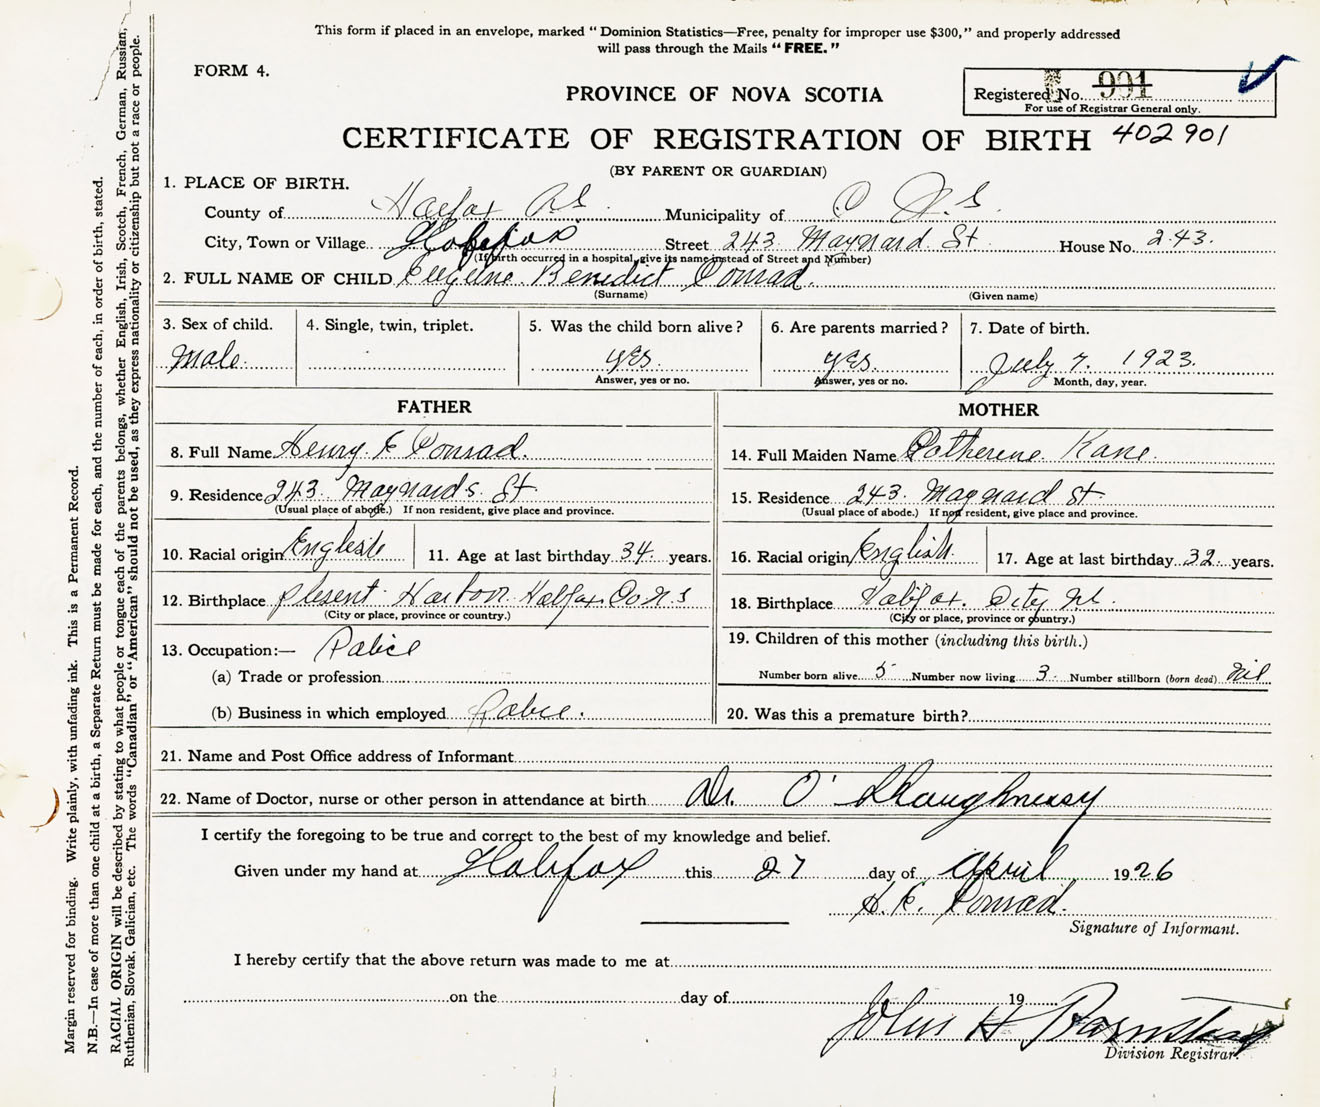 This form if placed in an envelope, marked "Dominion Statistics—Free, penalty for improper use $300," and properly addressed
will pass through the Mails "FREE."
FORM 4.
PROVINCE OF NOVA SCOTIA
Registered No. 901
For use of Registrar General only.
CERTIFICATE OF REGISTRATION OF BIRTH 402901
(BY PARENT OR GUARDIAN)
1. PLACE OF BIRTH.
County of Halifax Municipality of
City, Town or Village Halifax Street 243 Maynard St House No. 243.
(If birth occurred in a hospital, give its name instead of Street and Number)
2. FULL NAME OF CHILD Eugene Benedict Conrad.
(Surname) (Given name)
3. Sex of child. 4. Single, twin, triplet. 5. Was the child born alive? 6. Are parents married? 7. Date of birth.
Male. yes. yes. July 7. 1923.
Answer, yes or no. Answer, yes or no. Month, day, year.
FATHER
8. Full Name Henry F Conrad.
9. Residence 243 Maynards St.
(Usual place of abode.) If non resident, give place and province.
10. Racial origin English 11. Age at last birthday 34 years.
12. Birthplace plesent Harbor Halifax Co N.S
(City or place, province or country.)
13. Occupation:— Police
(a) Trade or profession
(b) Business in which employed Police.
MOTHER
14. Full Maiden Name Catherene Kane.
15. Residence 243 Maynard St
(Usual place of abode.) If non resident, give place and province.
16. Racial origin English. 17. Age at last birthday 32 years.
18. Birthplace Halifax City NS.
(City or place, province or country.)
19. Children of this mother (including this birth.)
Number born alive 5 Number now living 3 Number stillborn (born dead) Nil
20. Was this a premature birth?
21. Name and Post Office address of Informant
22. Name of Doctor, nurse or other person in attendance at birth Dr. O'Shaughnessy
I certify the foregoing to be true and correct to the best of my knowledge and belief.
Given under my hand at Halifax this 27 day of April 1926
H. F. Conrad.
Signature of Informant.
I hereby certify that the above return was made to me at
on the day of 19
John H
Division Registrar.
Margin reserved for binding. Write plainly, with unfading ink. This is a Permanent Record.
N.B.—In case of more than one child at a birth, a Separate Return must be made for each, and the number of each, in order of birth, stated.
RACIAL ORIGIN will be described by stating to what people or tongue each of the parents belongs, whether English, Irish, Scotch, French, German, Russian,
Ruthenian, Slovak, Galician, etc. The words "Canadian" or "American" should not be used, as they express nationality or citizenship but not a race or people.